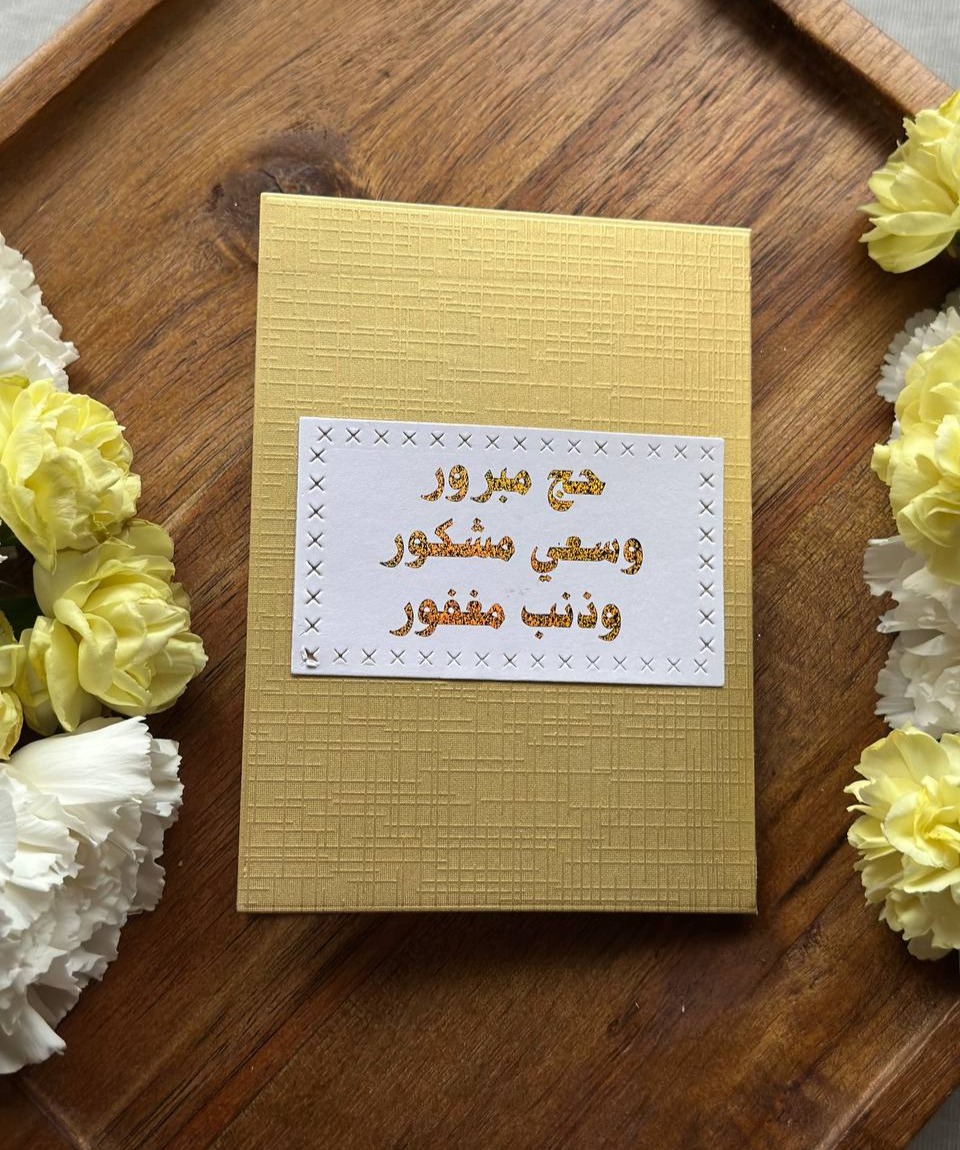 حج مبرور
وسعي مشكور
وذنب مغفور